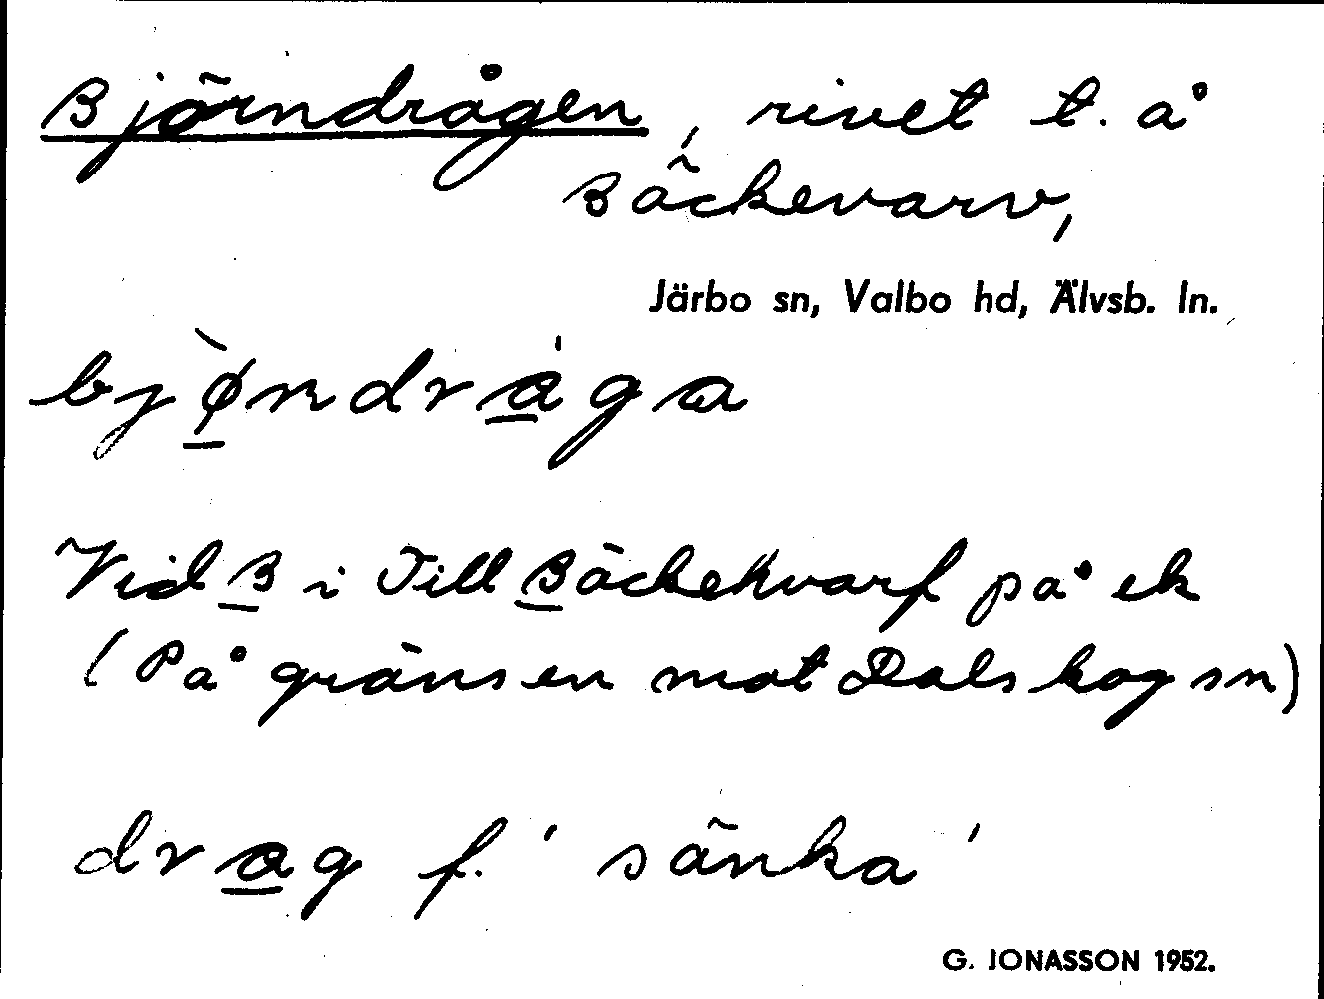 Björndrågen, rivet t. å
Bäckevarv,
Järbo sn, Valbo hd, Älvsb. ln.
bjø̀ndrága
Vid B i Till Bäckehvarf på ek
(På gränsen mot Dalskog sn)
drag f. 'sänka'
G. JONASSON 1952.